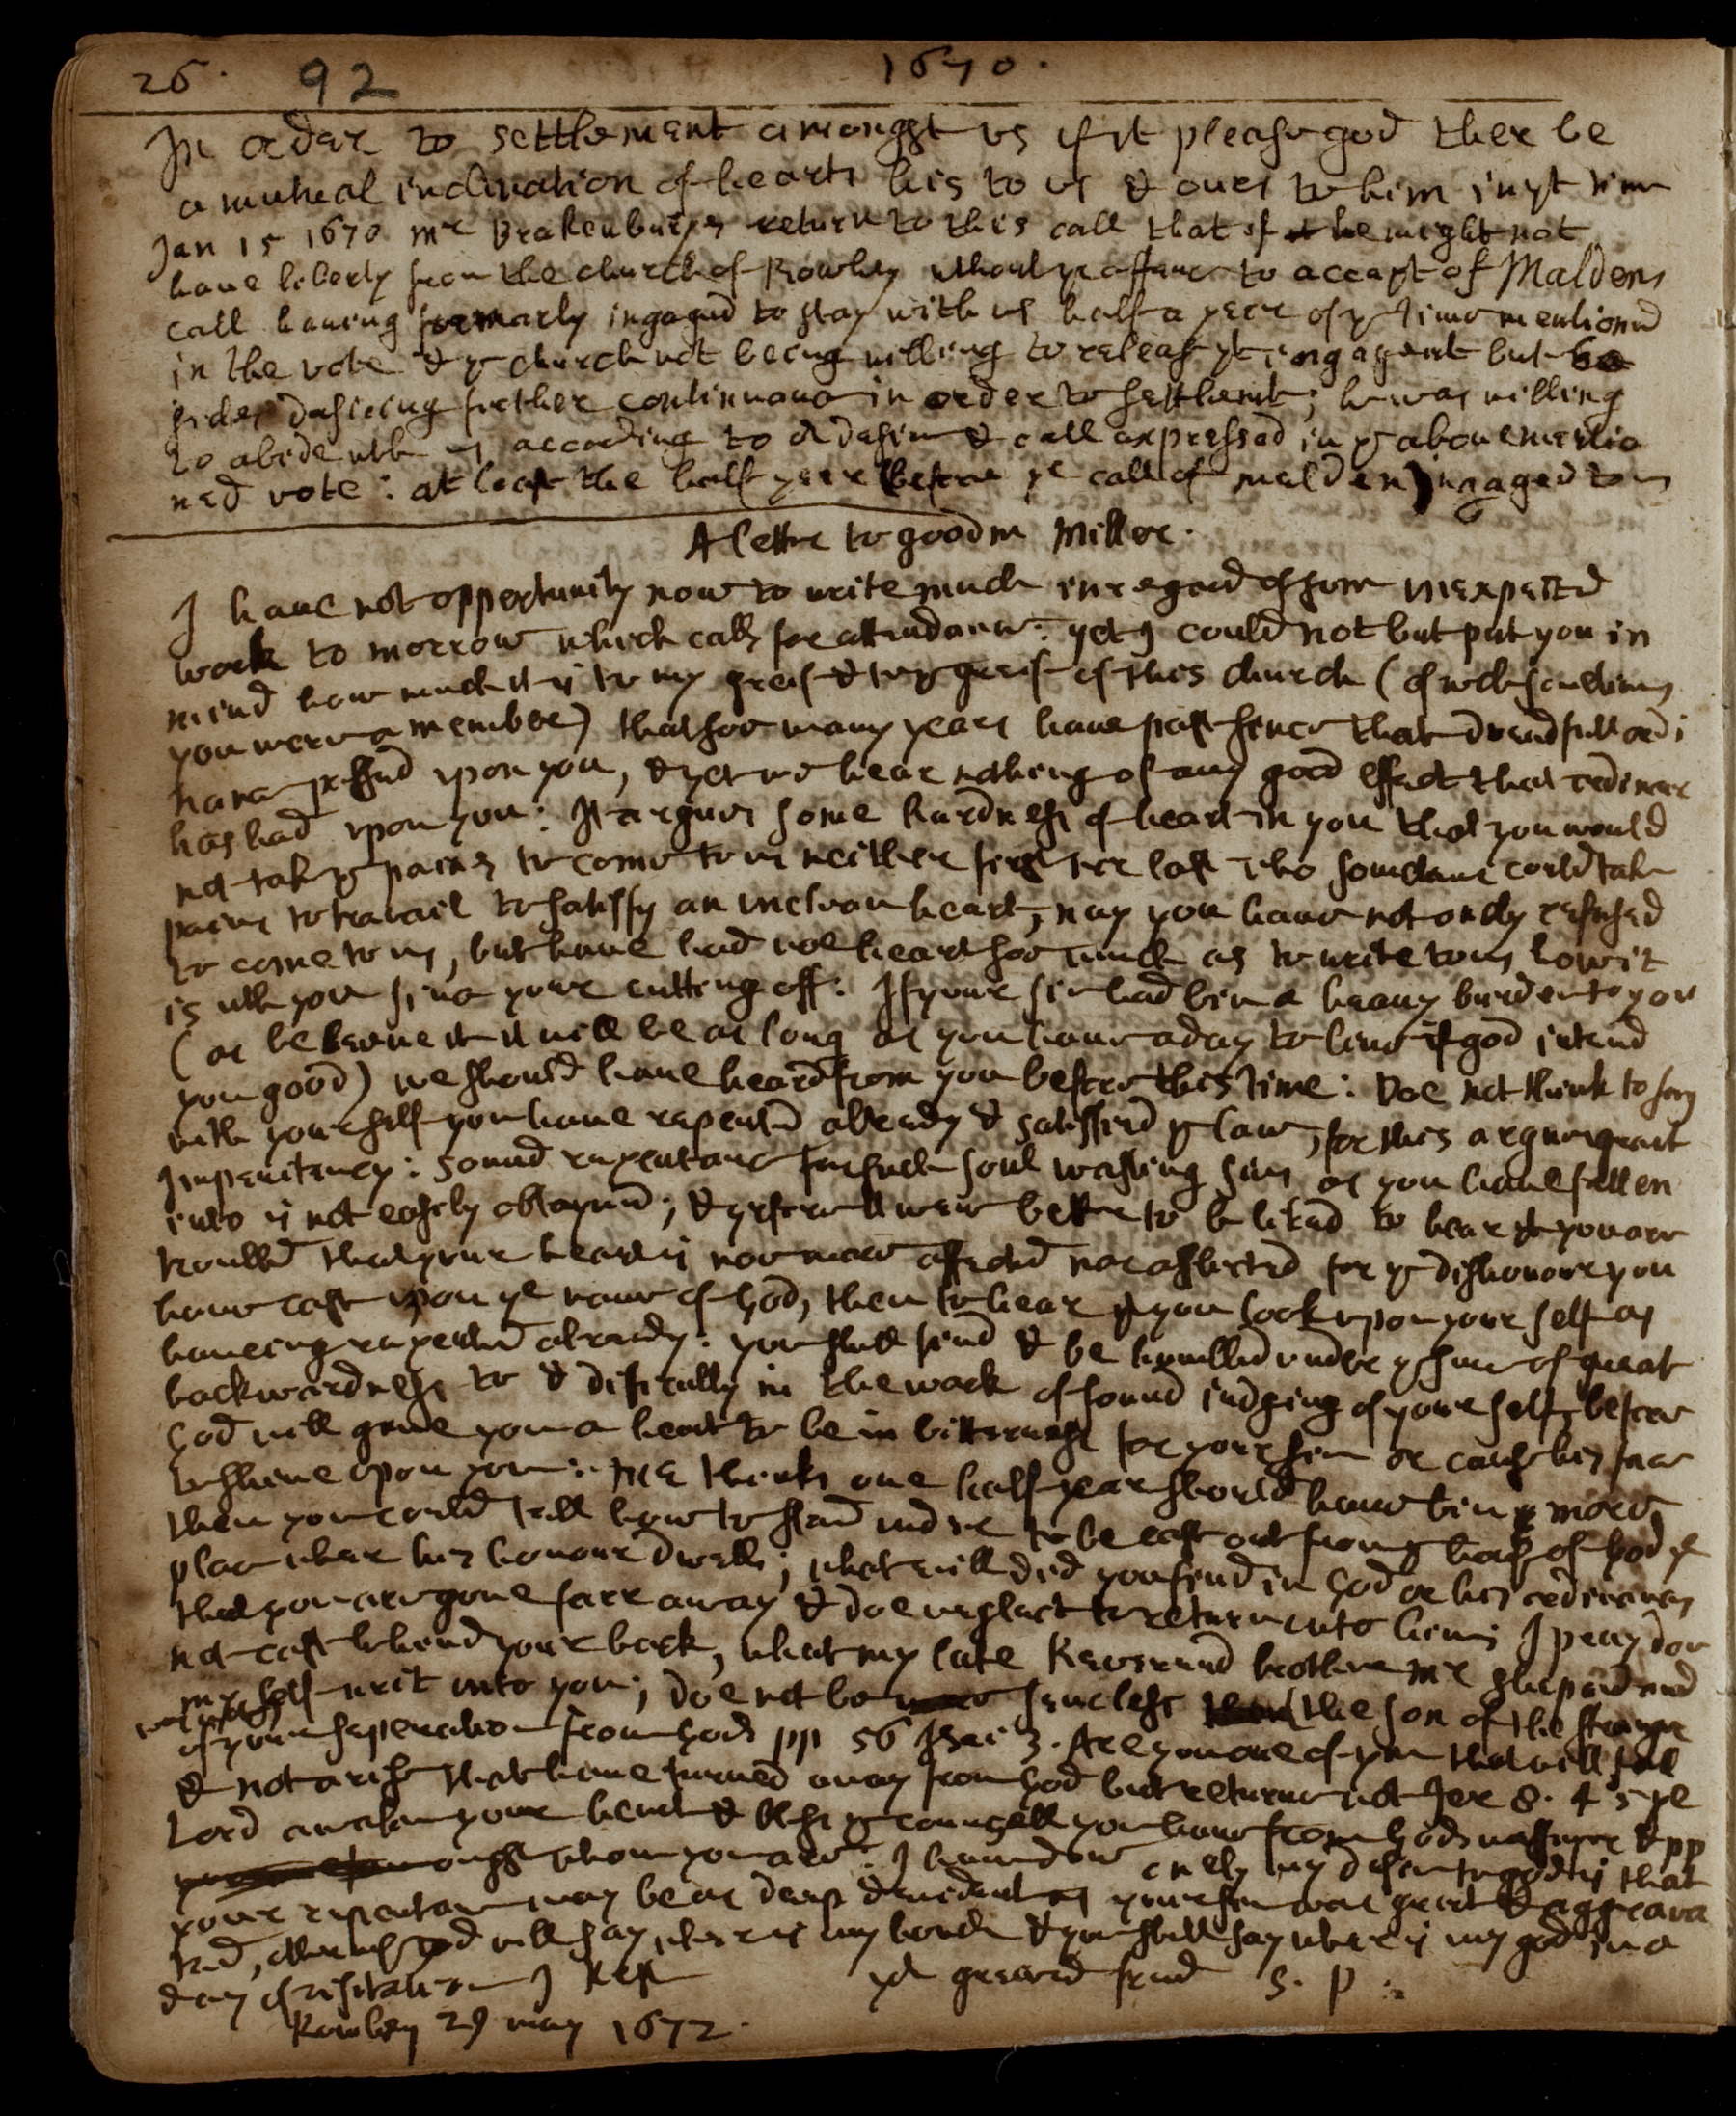 26. 92 1670.
In order to settlement amongst us if it please god ther be
a mutual inclination of hearts his to us & ours to him in yt time
Jan 15 1670 mr Brakenburyes return to this call that if he might not
haue liberty from the church of Rowley without ye offence to accept of Maldens
call haueing formarly ingaged to stay with us half a yeer of ye time mentiond
in the vote & ye church not being willing to releas yt ingagemt but be
sides desireing further continuance in order to settlemt; he was willing
to abide wth us according to or desire & call expressed in ye aboue mentio
ned vote: at least the half yeer (before ye call of melden) ingaged to us
A letter to goodm Miller.
I haue not opportunity now to write much in regard of some unexpected
work to morrow which calls for attendance: yet I could not but put you in
mind how much it is to my greif & to ye greif of this church (of wch somtimes
you were a member) that soe many years haue past since that dreadfull ordi
nance passed upon you, & yet we hear nothing of any good effect that ordinance
has had upon you: It argues some hardness of heart in you that you would
not take ye paines to come to us neither first nor last who somtime could take
paines to travail to satisfy an unclean heart, nay you haue not only refused
to come to us, but haue had noe heart soe much as to write to us how it
is wth you since your cutting off: If your sin had bin a heauy burden to you
(as beleeue it it will be as long as you haue a day to liue if god intend
you good) we should haue heard from you before this time: Doe not think to say
with your self you haue repented already & satisfied ye law, for this argues great
Impenitency: sound repentance for such soul wasting sins as you haue fallen
into is not easily obtayned; & therfore it were better to be liked to hear yt you are
troubled that your heart is noe more affected nor afflicted for ye dishonour you
haue cast upon ye name of God, then to hear yt you look upon your self as
haueing repented already: you shall find & be humbled under ye sense of great
backwardness to & dificulty in the work of sound judging of your self before
God will giue you a heart to be in bitterness for your sin or cause his face
to shine upon you: me thinks one half year should haue bin more
then you could tell how to stand under to be cast out from ye house of God ye
place wher his honour dwells; what evill did you find in God or his ordinances
that you are gone farr away & doe neglect to return unto him; I pray doe
not cast behind your back, what my late Reverend brother mr shepard and
my self writ unto you; doe not be senclesse the son of the stranger
of your seperation from Gods pp 56 Isai 3. Are you one of ym that will fall
& not arise that haue turned away from God but returne not Jer 8. 4 5 ye
Lord awaken your heart & bless ye councell you haue from Gods messengrs & pp
amongst whom you are: I haue done onely my desire to god is that
your repentance may be as deep & evident as your sin was great & aggrava
ted, otherwise god will say, wher is my honor & you shall say wher is my god in a
day of visitation I Rest yor greeved frend S. P.
Rowley 29 may 1672.